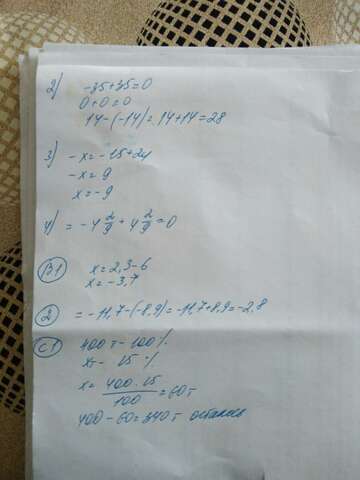 2) -35+35=0
0+0=0
14-(-14)=14+14=28
3) -x=-15+24
-x=9
x=-9
4) =-4 2/9+4 2/9=0
B1 x=2,3-6
x=-3,7
2 =-11,7-(-8,9)=-11,7+8,9=-2,8
C1 400т-100%
xт- 15%
x=400·15/100=60т
400-60=340т осталось